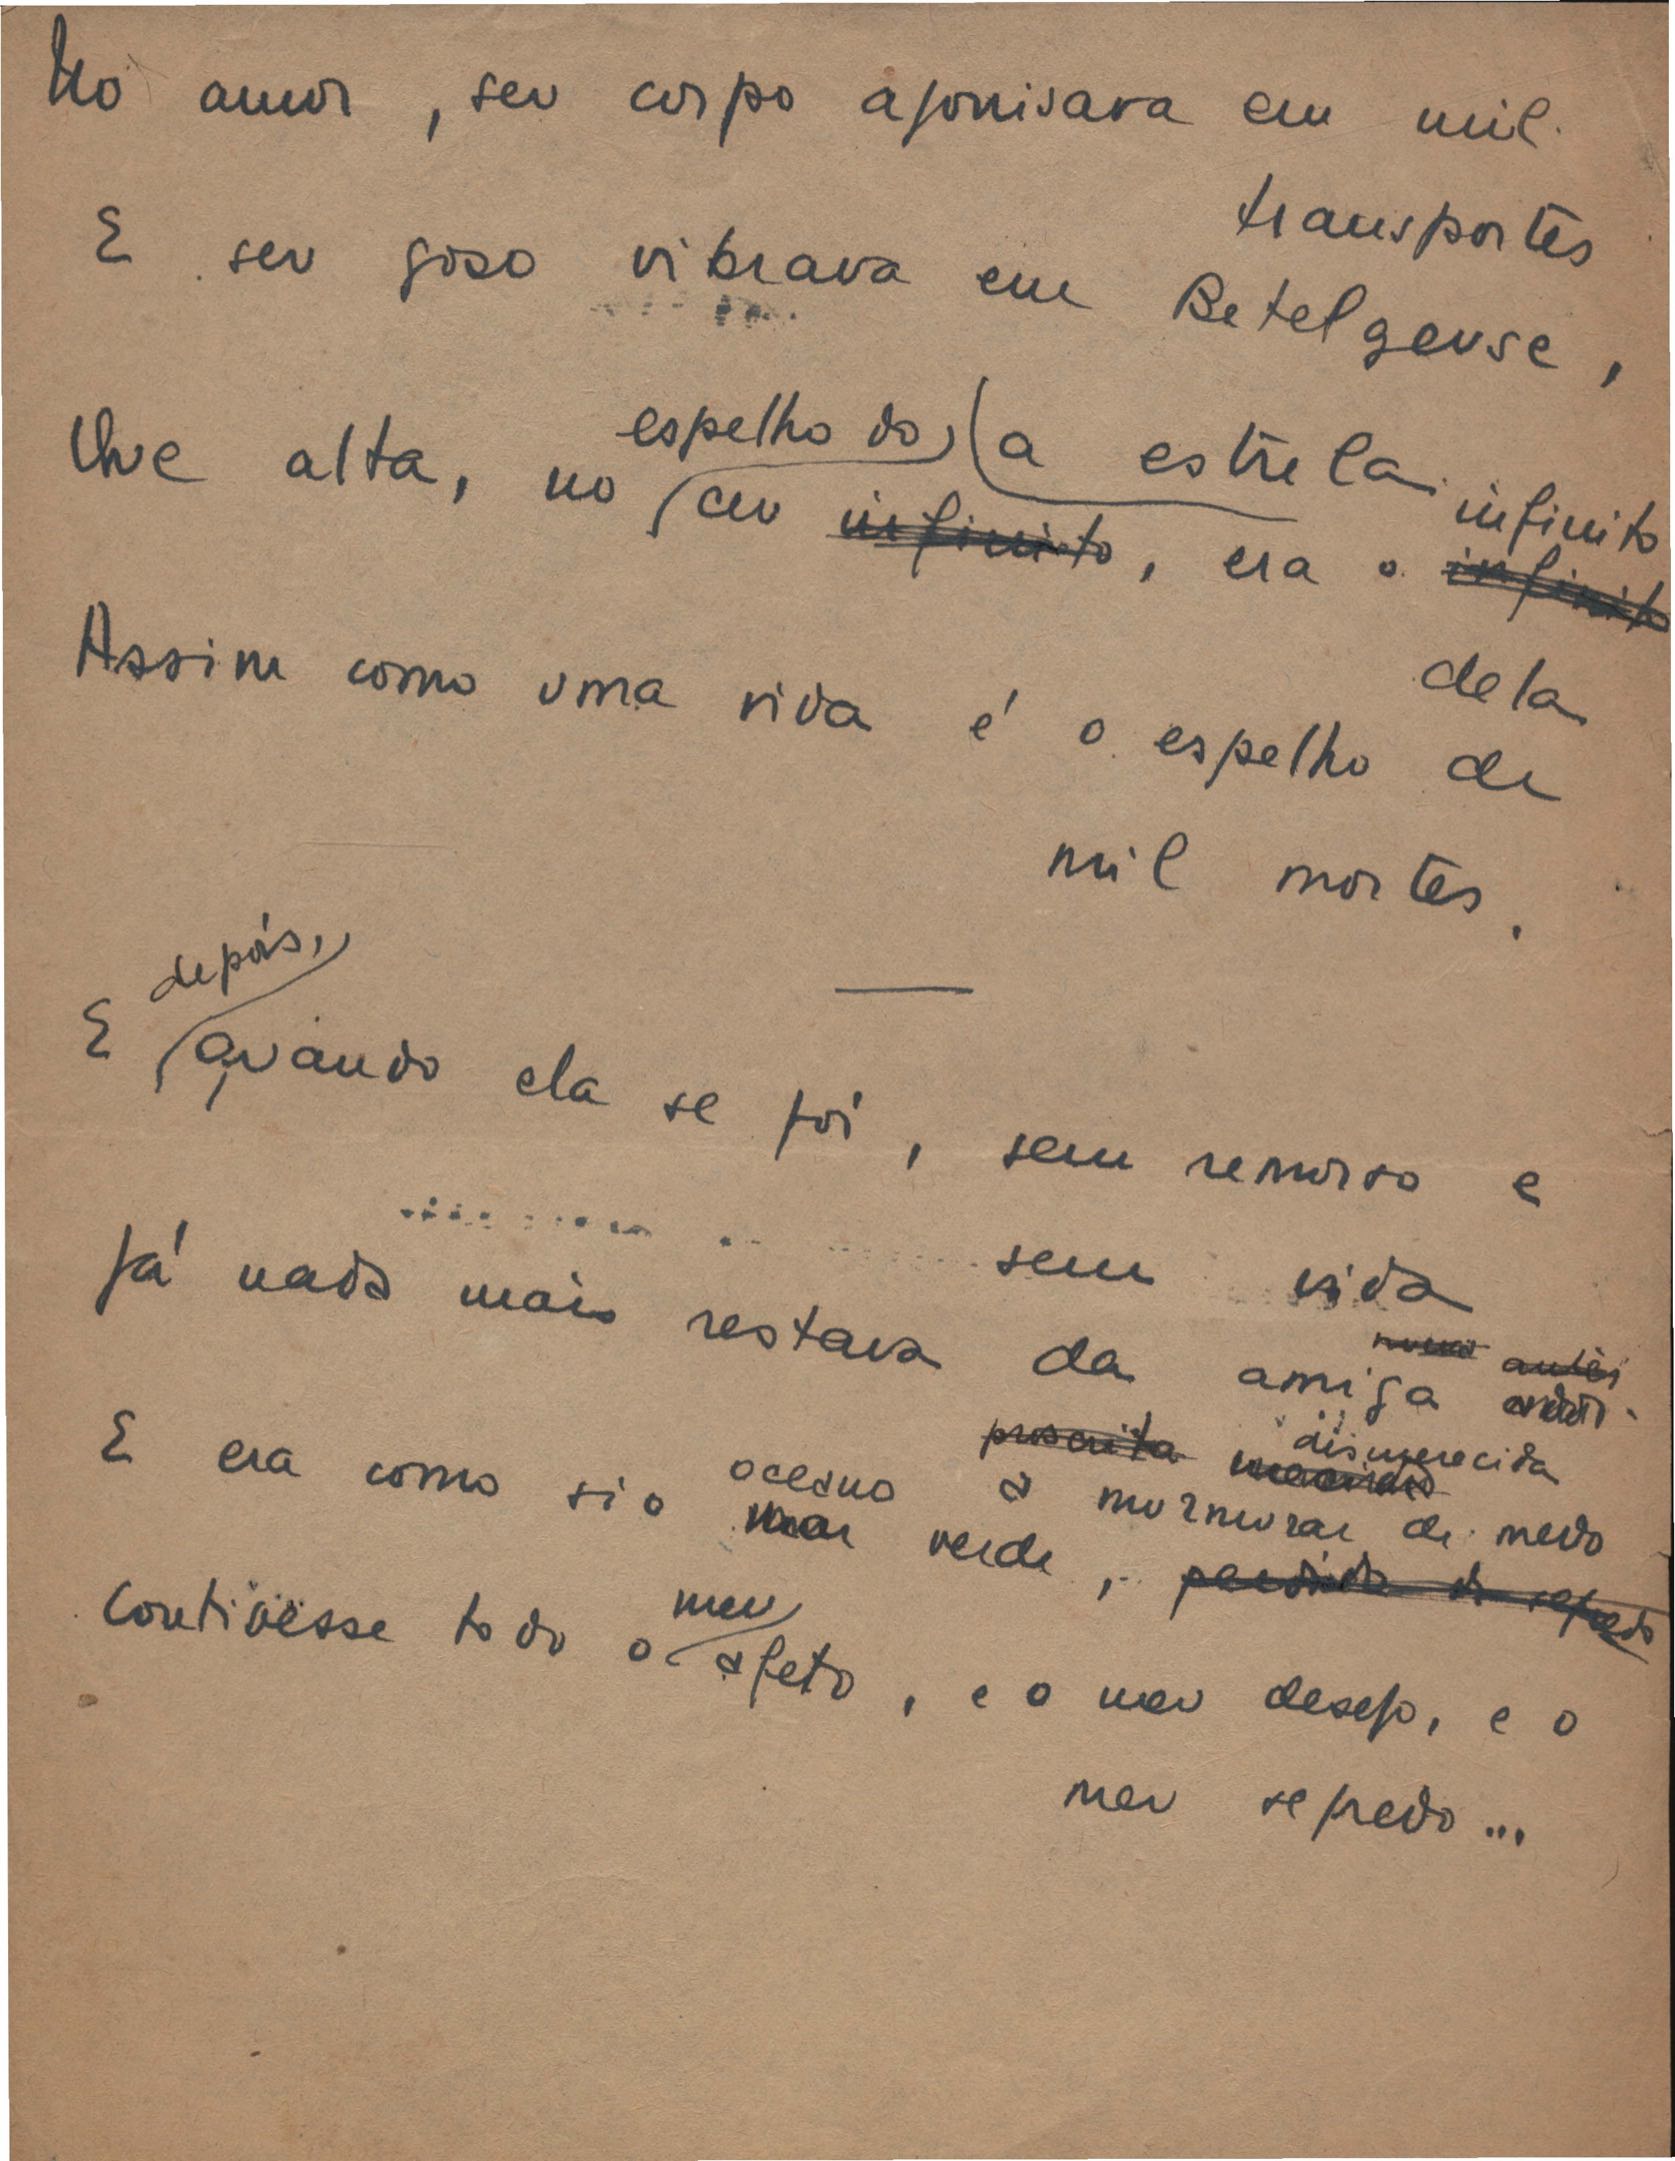 No amor, seu corpo agonisava em mil
transportes
E seu goso vibrava em Betelgeuse,
a estrela
Que alta, no espelho do céu infinito, era o infinito infinito
dela
Assim como uma vida é o espelho de
mil mortes.
E depois, quando ela se foi, sem remorso e
sem vida
Já nada mais restava da amiga
antes
proscrita desmerecida
E era como si o oceano mar verde, a murmurar de medo
perdida de segredo
Contivesse todo o meu afeto, e o meu desejo, e o
meu segredo...